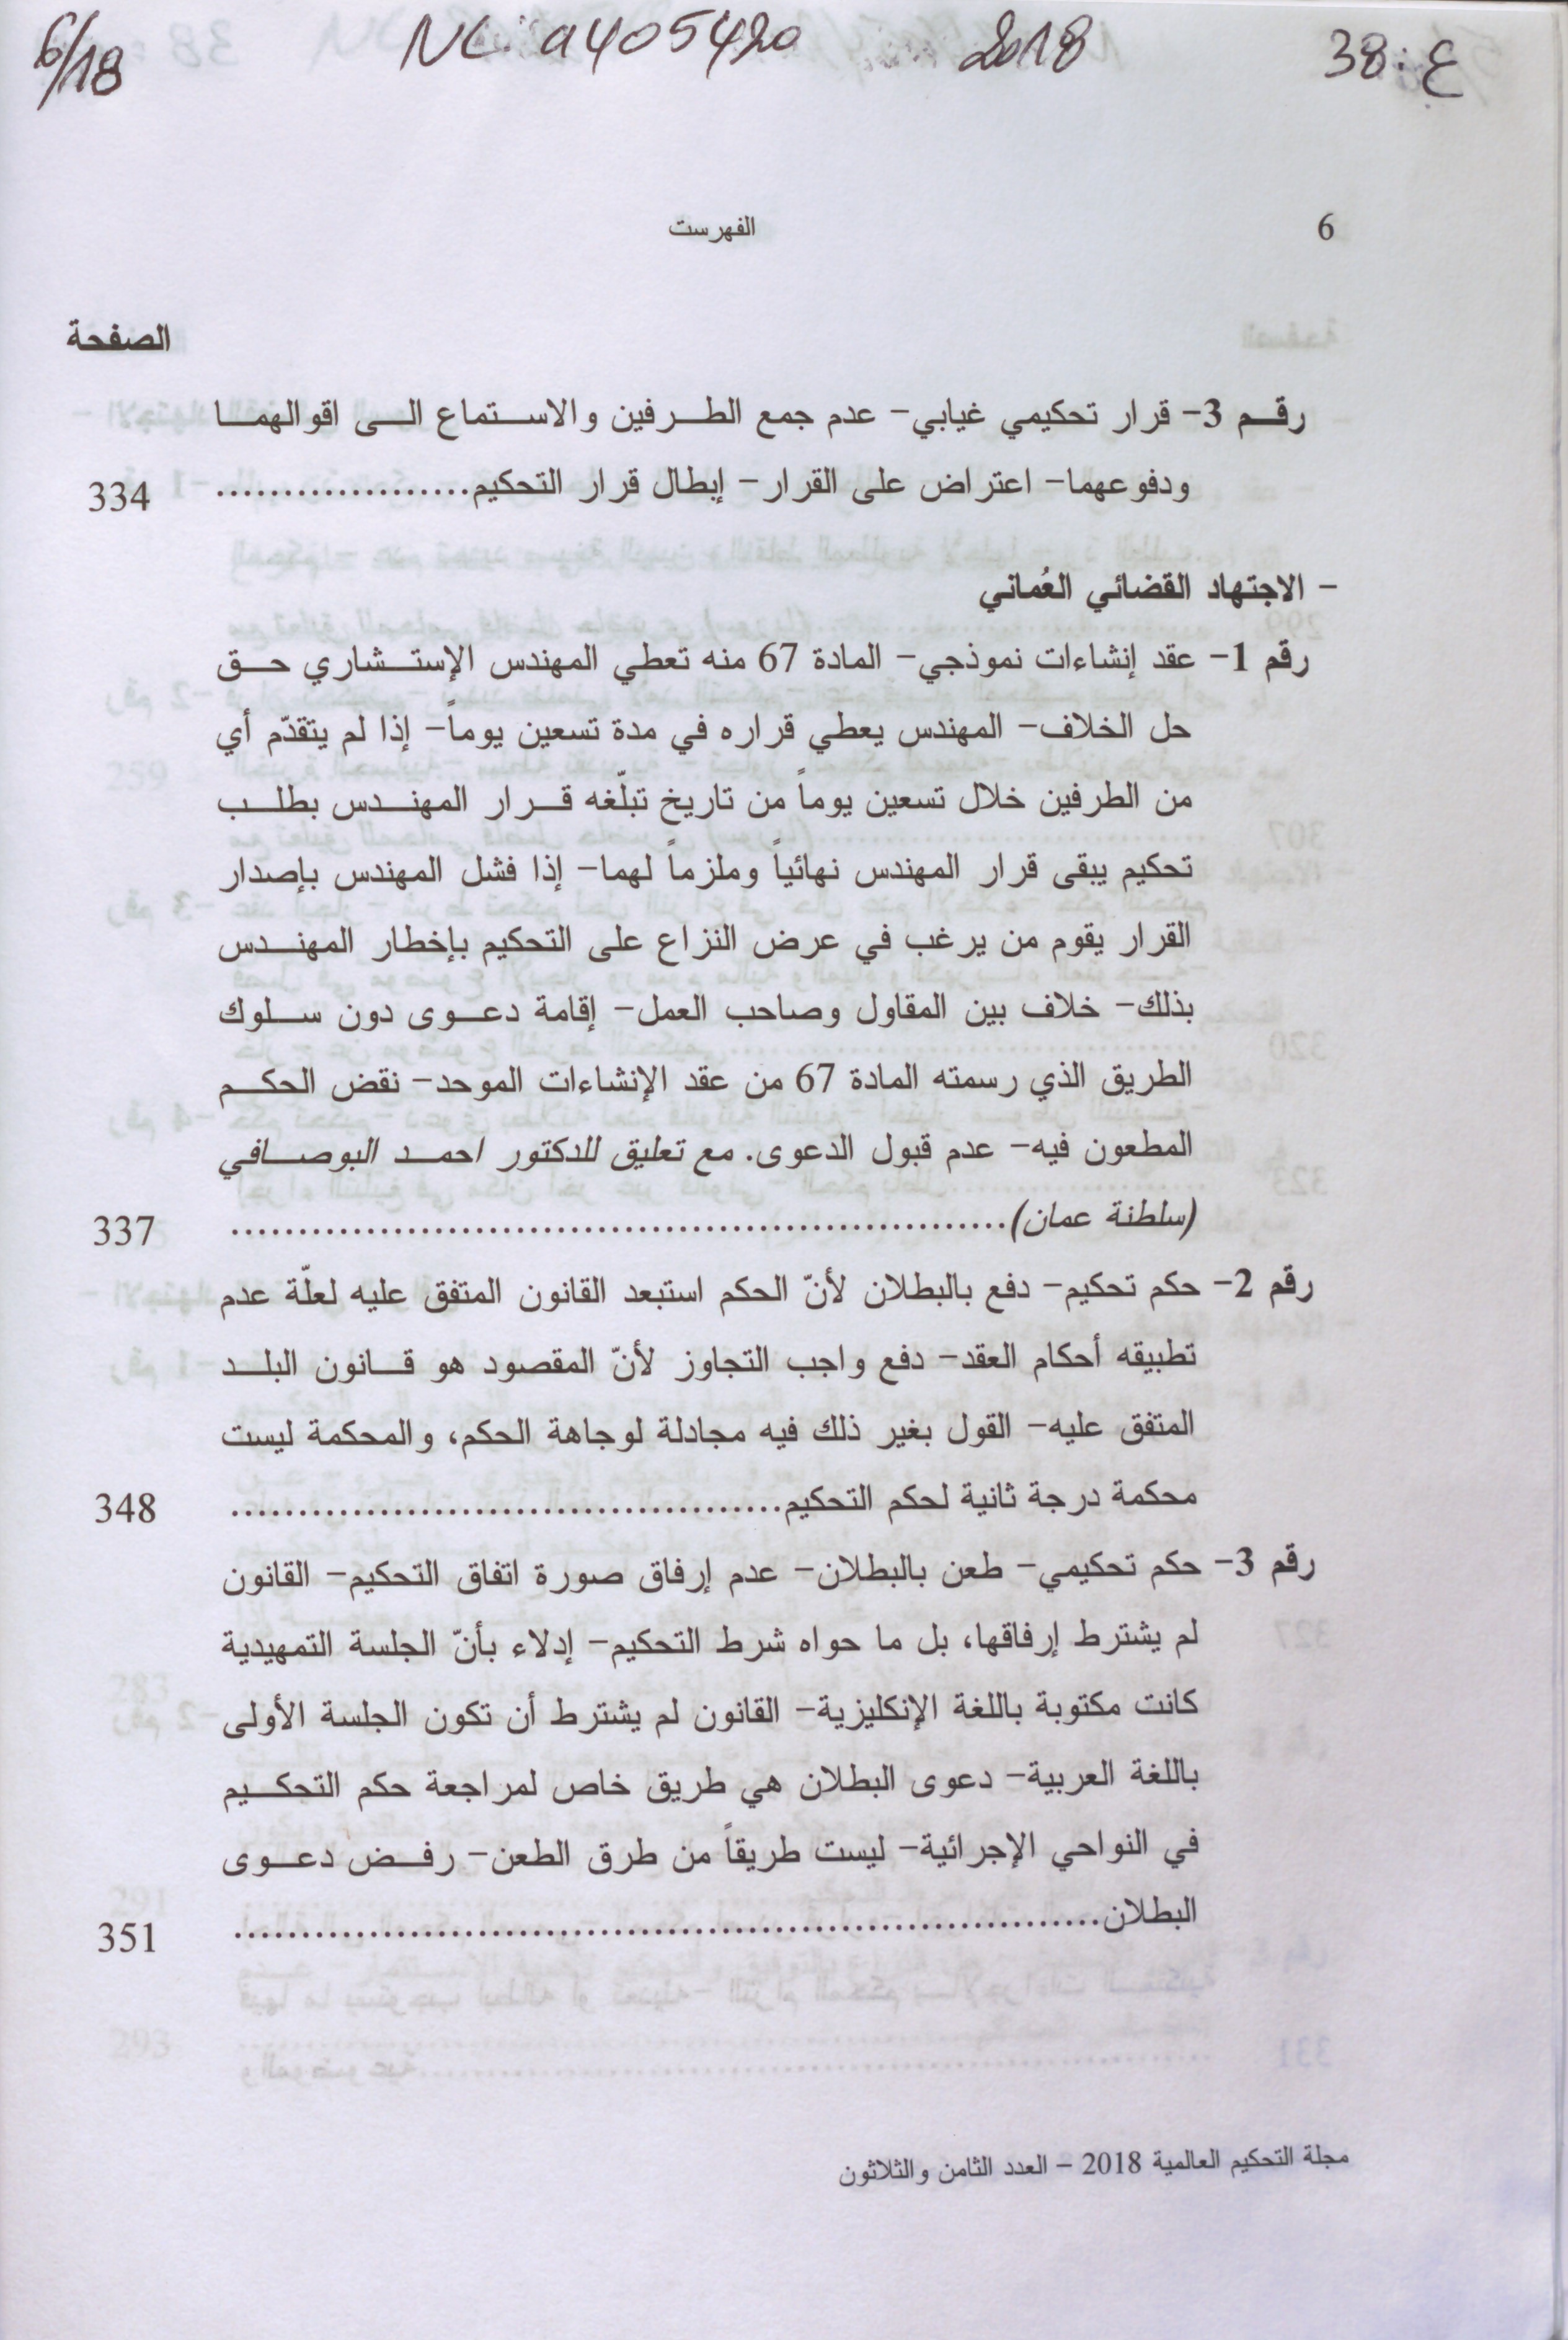 6/18 NL: a405420 2018 ع: 38
6 الفهرست
الصفحة
رقم 3- قرار تحكيمي غيابي- عدم جمع الطرفين والاستماع الى اقوالهما
ودفوعهما- اعتراض على القرار- إبطال قرار التحكيم................... 334
- الاجتهاد القضائي العُماني
رقم 1- عقد إنشاءات نموذجي- المادة 67 منه تعطي المهندس الإستشاري حق
حل الخلاف- المهندس يعطي قراره في مدة تسعين يوماً- إذا لم يتقدّم أي
من الطرفين خلال تسعين يوماً من تاريخ تبلّغه قرار المهندس بطلب
تحكيم يبقى قرار المهندس نهائياً وملزماً لهما- إذا فشل المهندس بإصدار
القرار يقوم من يرغب في عرض النزاع على التحكيم بإخطار المهندس
بذلك- خلاف بين المقاول وصاحب العمل- إقامة دعوى دون سلوك
الطريق الذي رسمته المادة 67 من عقد الإنشاءات الموحد- نقض الحكم
المطعون فيه- عدم قبول الدعوى. مع تعليق للدكتور احمد البوصافي
(سلطنة عمان).......................................................... 337
رقم 2- حكم تحكيم- دفع بالبطلان لأنّ الحكم استبعد القانون المتفق عليه لعلّة عدم
تطبيقه أحكام العقد- دفع واجب التجاوز لأنّ المقصود هو قانون البلد
المتفق عليه- القول بغير ذلك فيه مجادلة لوجاهة الحكم، والمحكمة ليست
محكمة درجة ثانية لحكم التحكيم......................................... 348
رقم 3- حكم تحكيمي- طعن بالبطلان- عدم إرفاق صورة اتفاق التحكيم- القانون
لم يشترط إرفاقها، بل ما حواه شرط التحكيم- إدلاء بأنّ الجلسة التمهيدية
كانت مكتوبة باللغة الإنكليزية- القانون لم يشترط أن تكون الجلسة الأولى
باللغة العربية- دعوى البطلان هي طريق خاص لمراجعة حكم التحكيم
في النواحي الإجرائية- ليست طريقاً من طرق الطعن- رفض دعوى
البطلان................................................................. 351
مجلة التحكيم العالمية 2018 - العدد الثامن والثلاثون